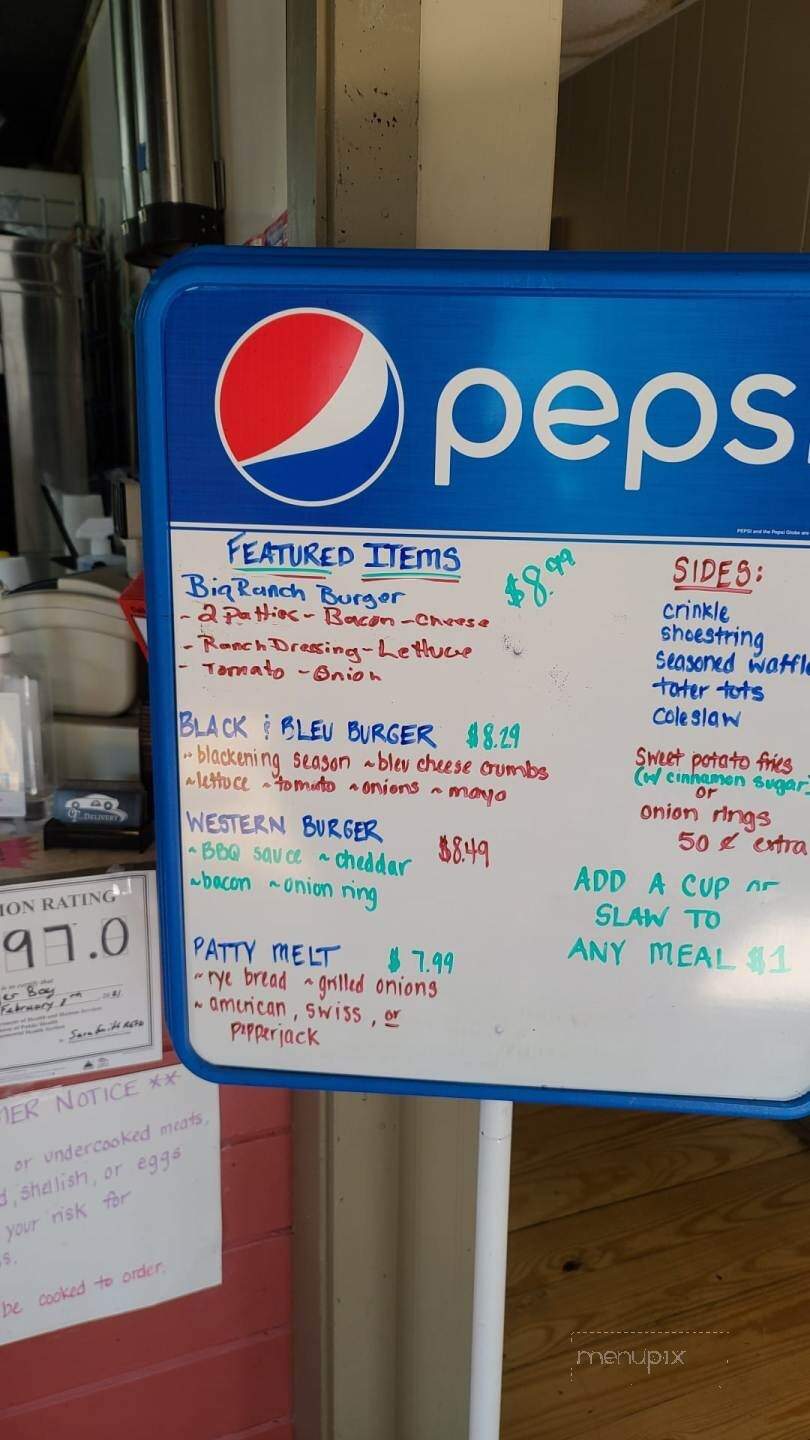 pepsi
PEPSI and the Pepsi Globe are
FEATURED ITEMS
Big Ranch Burger $8.99
- 2 Patties - Bacon - Cheese
- Ranch Dressing - Lettuce
- Tomato - Onion
BLACK & BLEU BURGER $8.29
~ blackening season ~ bleu cheese crumbs
~ lettuce ~ tomato ~ onions ~ mayo
WESTERN BURGER
~ BBQ sauce ~ cheddar $8.49
~ bacon ~ onion ring
PATTY MELT $7.99
~ rye bread ~ grilled onions
~ american, swiss, or
pepperjack
SIDES:
crinkle
shoestring
seasoned waffle
tater tots
coleslaw
Sweet potato fries
(w/ cinnamon sugar)
or
onion rings
50 ¢ extra
ADD A CUP OF
SLAW TO
ANY MEAL $1
DELIVERY
ION RATING
97.0
er Boy
February
MER NOTICE **
or undercooked meats,
d, shellish, or eggs
your risk for
s.
be cooked to order.
menupix